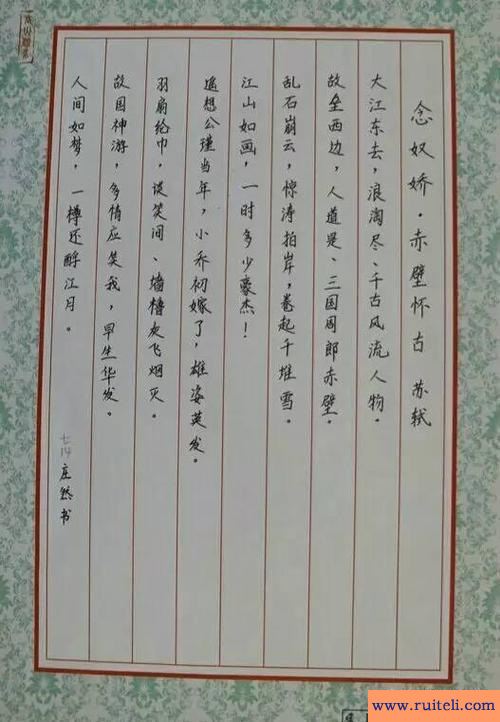 念奴娇·赤壁怀古 苏轼
大江东去，浪淘尽、千古风流人物。
故垒西边，人道是、三国周郎赤壁。
乱石崩云，惊涛拍岸，卷起千堆雪。
江山如画，一时多少豪杰！
遥想公瑾当年，小乔初嫁了，雄姿英发。
羽扇纶巾，谈笑间、墙橹灰飞烟灭。
故国神游，多情应笑我，早生华发。
人间如梦，一樽还酹江月。
七14 庄然书
www.ruiteli.com